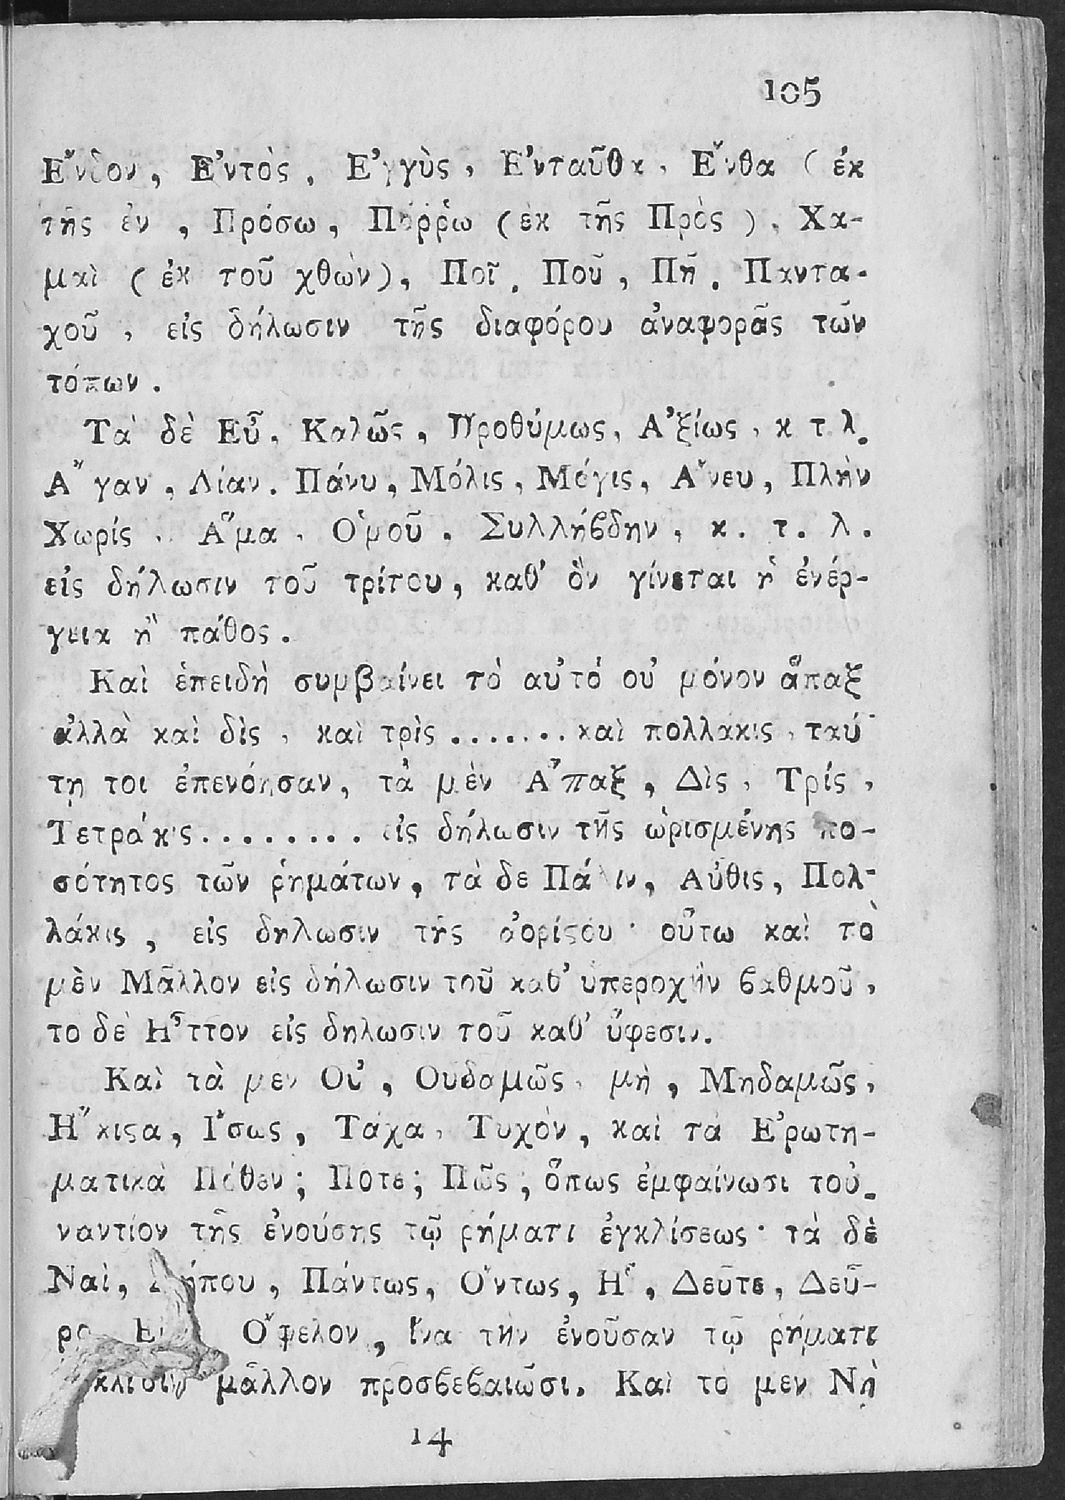 105
Ε῎νδον, Ε᾿ντὸς, Ε᾿γγὺς, Ε᾿νταῦθα, Ε῎νθα (ἐκ
τῆς ἐν, Πρόσω, Πόῤῥω (ἐκ τῆς Πρὸς), Χα-
μαὶ (ἐκ τοῦ χθὼν), Ποῖ, Ποῦ, Πῆ, Παντα-
χοῦ, εἰς δήλωσιν τῆς διαφόρου ἀναφορᾶς τῶν
τόπων.
Τὰ δὲ Εὖ, Καλῶς, Προθύμως, Α᾿ξίως, κ τ λ.
Α῎γαν, Λίαν, Πάνυ, Μόλις, Μόγις, Α῎νευ, Πλὴν
Χωρίς, Α῞μα, Ο῾μοῦ, Συλλήβδην, κ. τ. λ.
εἰς δήλωσιν τοῦ τρίτου, καθ' ὃν γίνεται ἡ ἐνέρ-
γεια ἢ πάθος.
Καὶ ἐπειδὴ συμβαίνει τὸ αὐτὸ οὐ μόνον ἅπαξ
ἀλλὰ καὶ δὶς, καὶ τρὶς.......καὶ πολλάκις, ταύ-
τῃ τοι ἐπενόησαν, τὰ μὲν Α῞παξ, Δὶς, Τρίς,
Τετράκις........εἰς δήλωσιν τῆς ὡρισμένης πο-
σότητος τῶν ῥημάτων, τὰ δε Πάλιν, Αὖθις, Πολ-
λάκις, εἰς δηλωσιν τῆς ἀορίϛου· οὕτω καὶ τὸ
μὲν Μᾶλλον εἰς δήλωσιν τοῦ καθ' ὑπεροχὴν βαθμοῦ,
το δὲ Η῟ττον εἰς δηλωσιν τοῦ καθ' ὕφεσιν.
Καὶ τὰ μεν Οὐ, Ουδαμῶς, μὴ, Μηδαμῶς,
Η῞κιϛα, Ι῎σως, Τάχα, Τυχὸν, καὶ τὰ Ε᾿ρωτη-
ματικὰ Πόθεν; Ποτε; Πῶς; ὅπως ἐμφαίνωσι τοὐ-
ναντίον τῆς ἐνούσης τῷ ρήματι ἐγκλίσεως· τὰ δὲ
Ναὶ, Πάντως, Ο῎ντως, Η῏, Δεῦτε, Δεῦ-
ρο Ο῎φελον, ἵνα τὴν ἐνοῦσαν τῷ ρήματι
μᾶλλον προσβεβαιῶσι. Καὶ τὸ μεν Νὴ
14